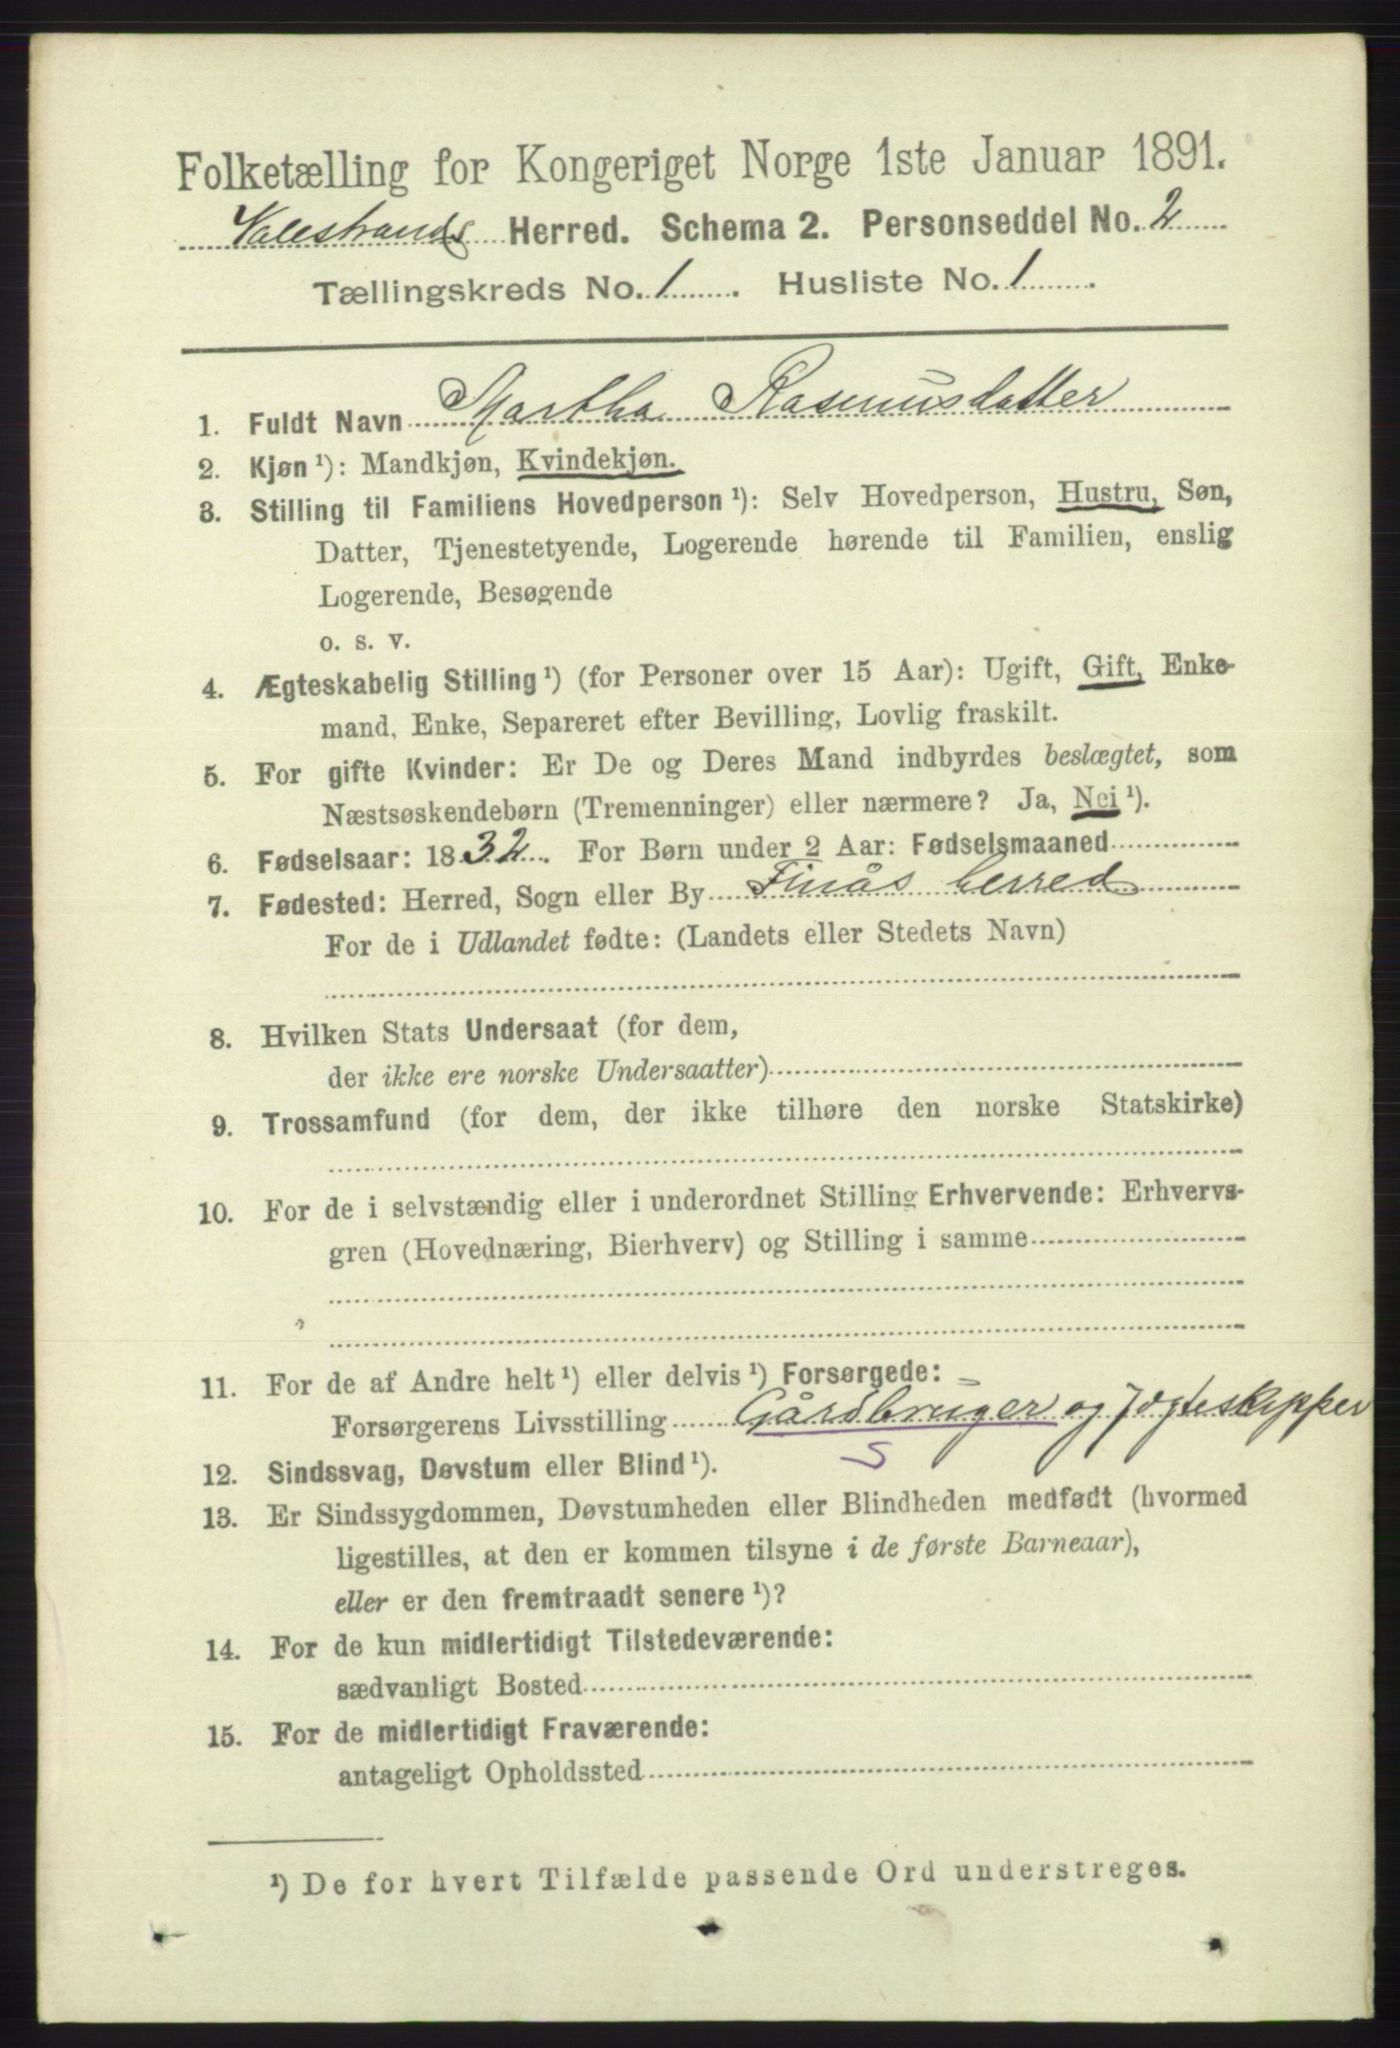 Folketælling for Kongeriget Norge 1ste Januar 1891.
Valestrands Herred. Schema 2. Personseddel No. 2
Tællingskreds No. 1 . Husliste No. 1 .
1. Fuldt Navn Martha Rasmusdatter
2. Kjøn ¹): Mandkjøn, Kvindekjøn.
3. Stilling til Familiens Hovedperson ¹): Selv Hovedperson, Hustru, Søn,
Datter, Tjenestetyende, Logerende hørende til Familien, enslig
Logerende, Besøgende
o. s. v.
4. Ægteskabelig Stilling ¹) (for Personer over 15 Aar): Ugift, Gift, Enke-
mand, Enke, Separeret efter Bevilling, Lovlig fraskilt.
5. For gifte Kvinder: Er De og Deres Mand indbyrdes beslægtet, som
Næstsøskendebørn (Tremenninger) eller nærmere? Ja, Nei ¹).
6. Fødselsaar: 1832 . For Børn under 2 Aar: Fødselsmaaned
7. Fødested: Herred, Sogn eller By Finås herred
For de i Udlandet fødte: (Landets eller Stedets Navn)
8. Hvilken Stats Undersaat (for dem,
der ikke ere norske Undersaatter)
9. Trossamfund (for dem, der ikke tilhøre den norske Statskirke)
10. For de i selvstændig eller i underordnet Stilling Erhvervende: Erhvervs-
gren (Hovednæring, Bierhverv) og Stilling i samme
11. For de af Andre helt ¹) eller delvis ¹) Forsørgede:
Forsørgerens Livsstilling Gårdbruger og Jægteskipper
S
12. Sindssvag, Døvstum eller Blind ¹).
13. Er Sindssygdommen, Døvstumheden eller Blindheden medfødt (hvormed
ligestilles, at den er kommen tilsyne i de første Barneaar),
eller er den fremtraadt senere ¹)?
14. For de kun midlertidigt Tilstedeværende:
sædvanligt Bosted
15. For de midlertidigt Fraværende:
antageligt Opholdssted
¹) De for hvert Tilfælde passende Ord understreges.